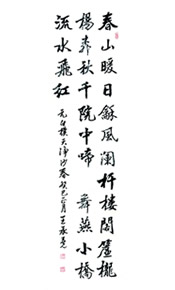 春山暖日龢風闌杆樓閣簾櫳
楊柳秋千院中啼舞燕小橋
流水飛紅
元白樸天淨沙春癸巳正月王承